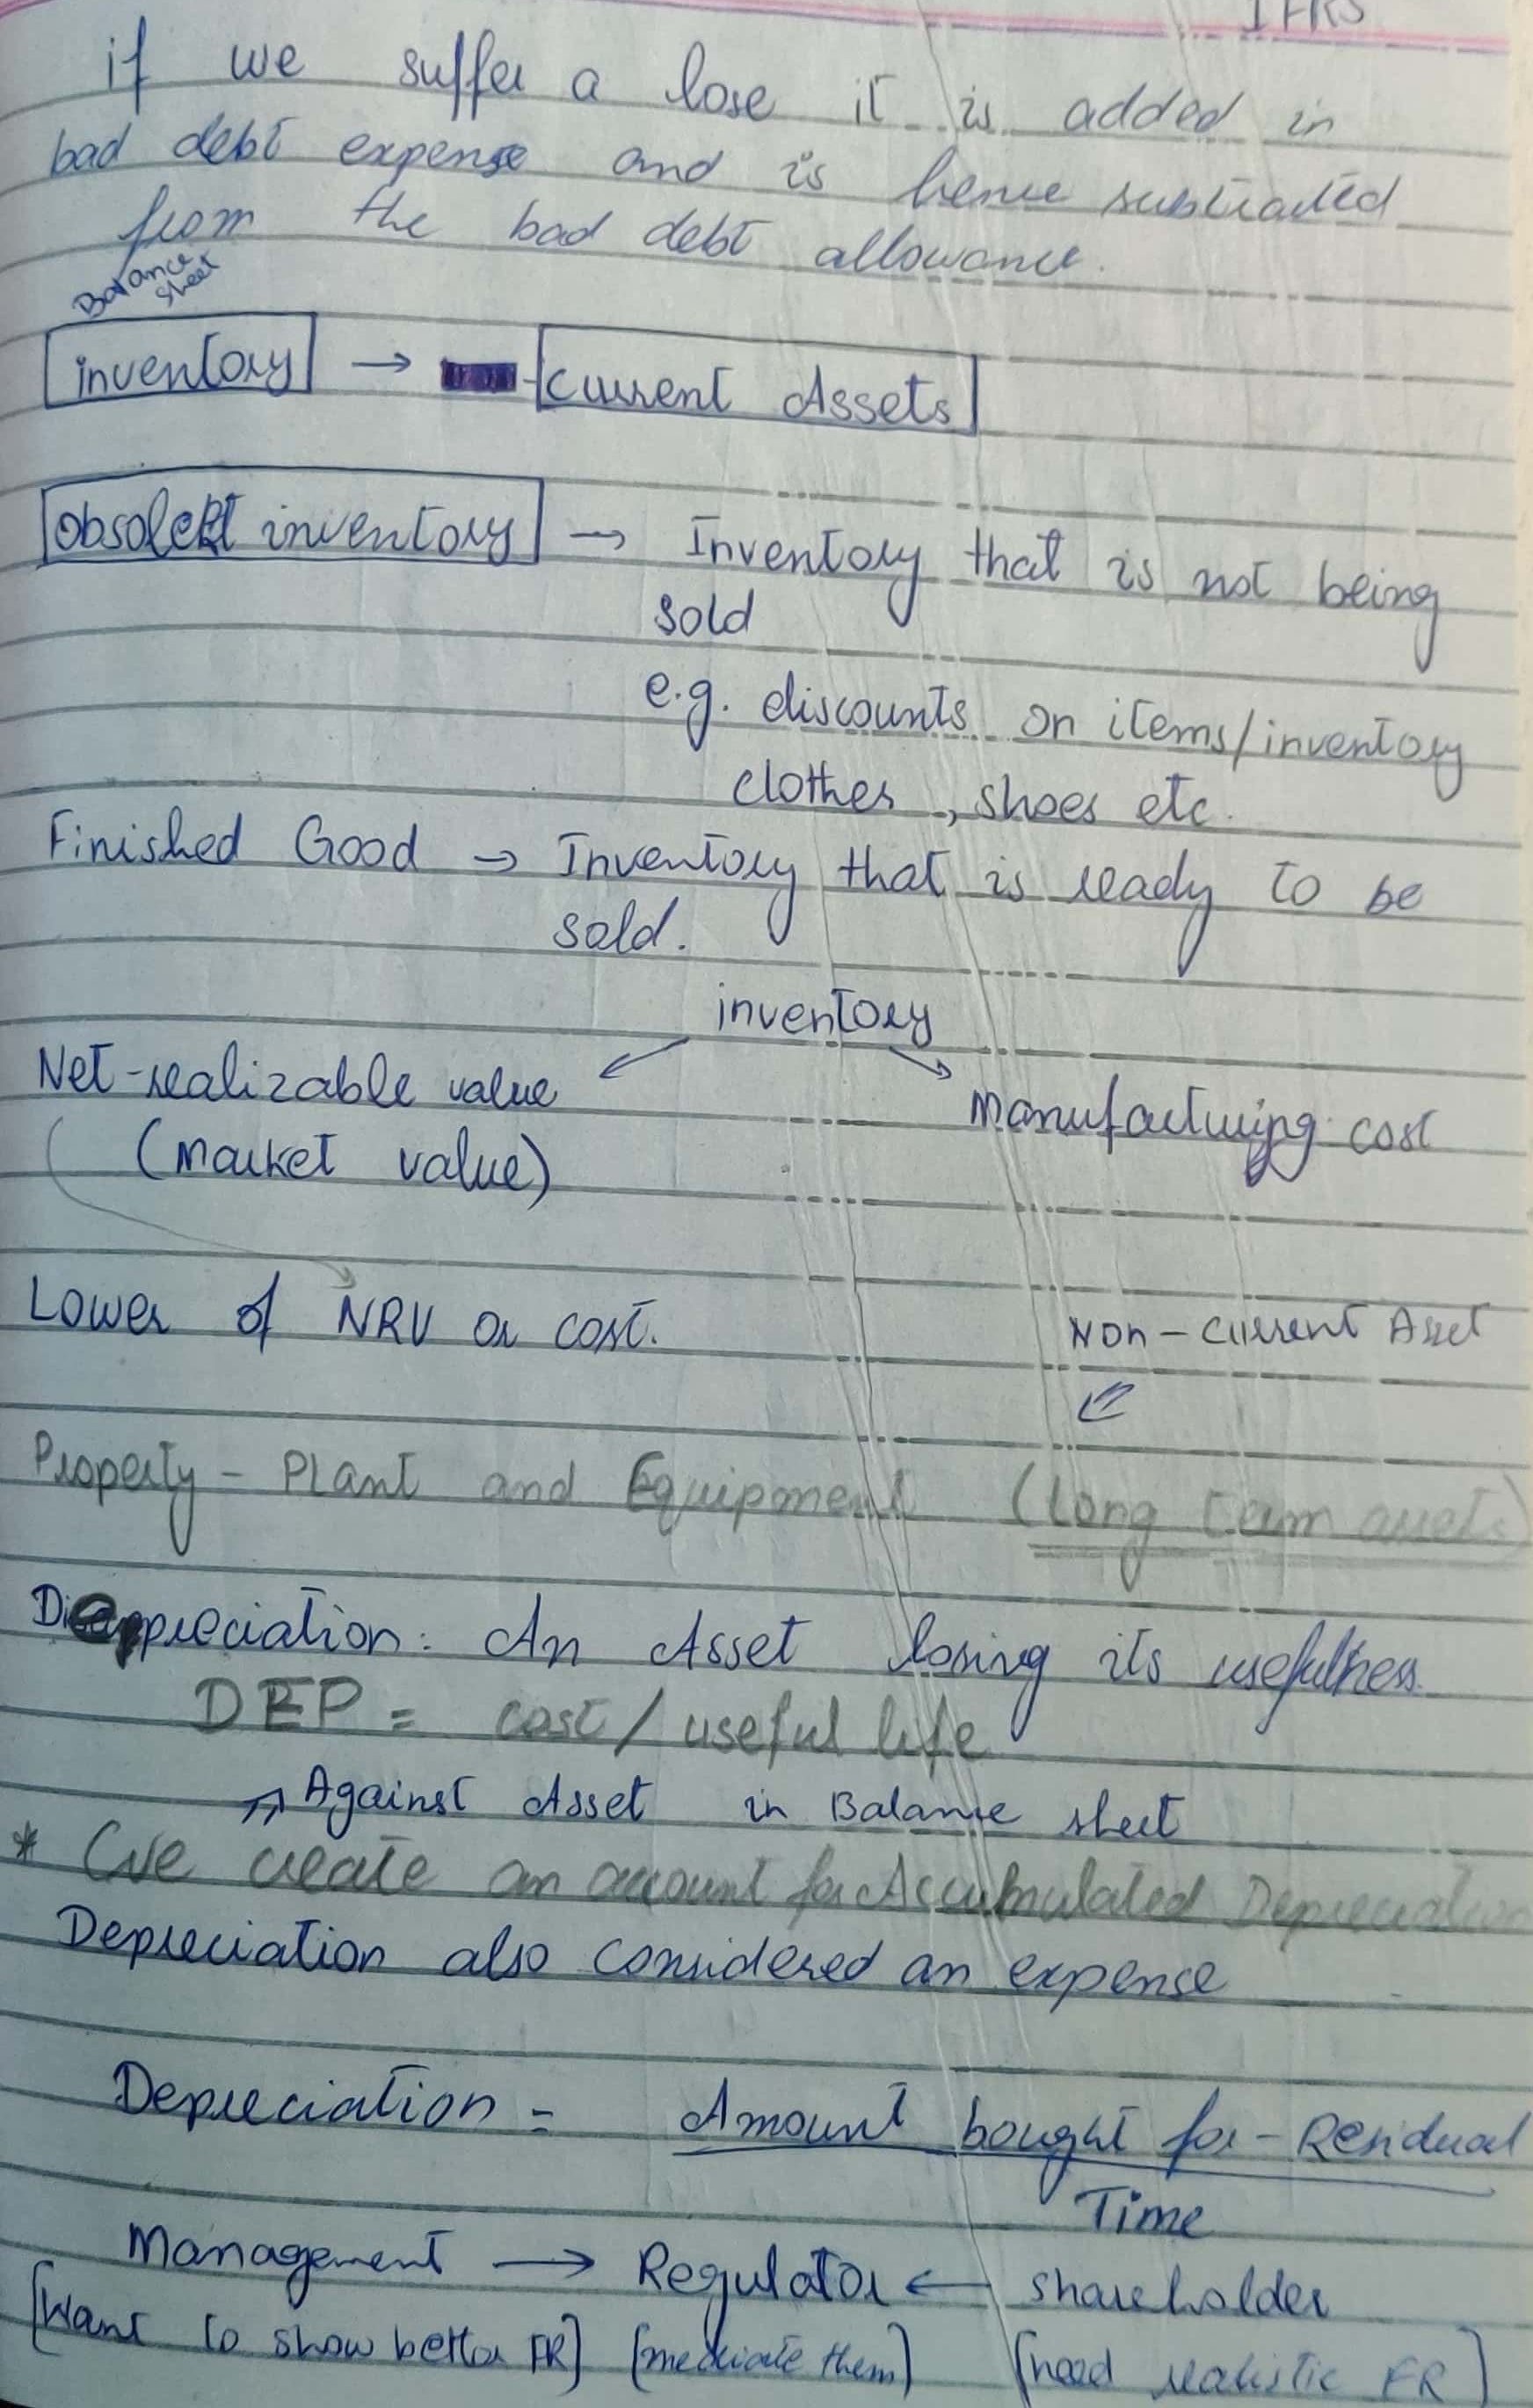 IFRS
if we suffer a lose it is added in
bad debt expense and is hence substracted
from the bad debt allowance.
Balance
sheet
inventory → current Assets
obsolett inventory → Inventory that is not being
sold
e.g. discounts on items/inventory
clothes, shoes etc.
Finished Good → Inventory that is ready to be
sold.
inventory
Net-realizable value
manufacturing cost
(market value)
Lower of NRV or cost.
Non-current Asset
Property - Plant and Equipment (long term assets)
Depreciation: An Asset losing its usefulness
DEP = cost / useful life
Against Asset in Balance sheet
* We create an account for Accumulated Depreciation
Depreciation also considered an expense
Depreciation = Amount bought for - Residual
Time
Management → Regulator ← shareholder
[Want to show better FR] [mediate them] [need realistic FR]